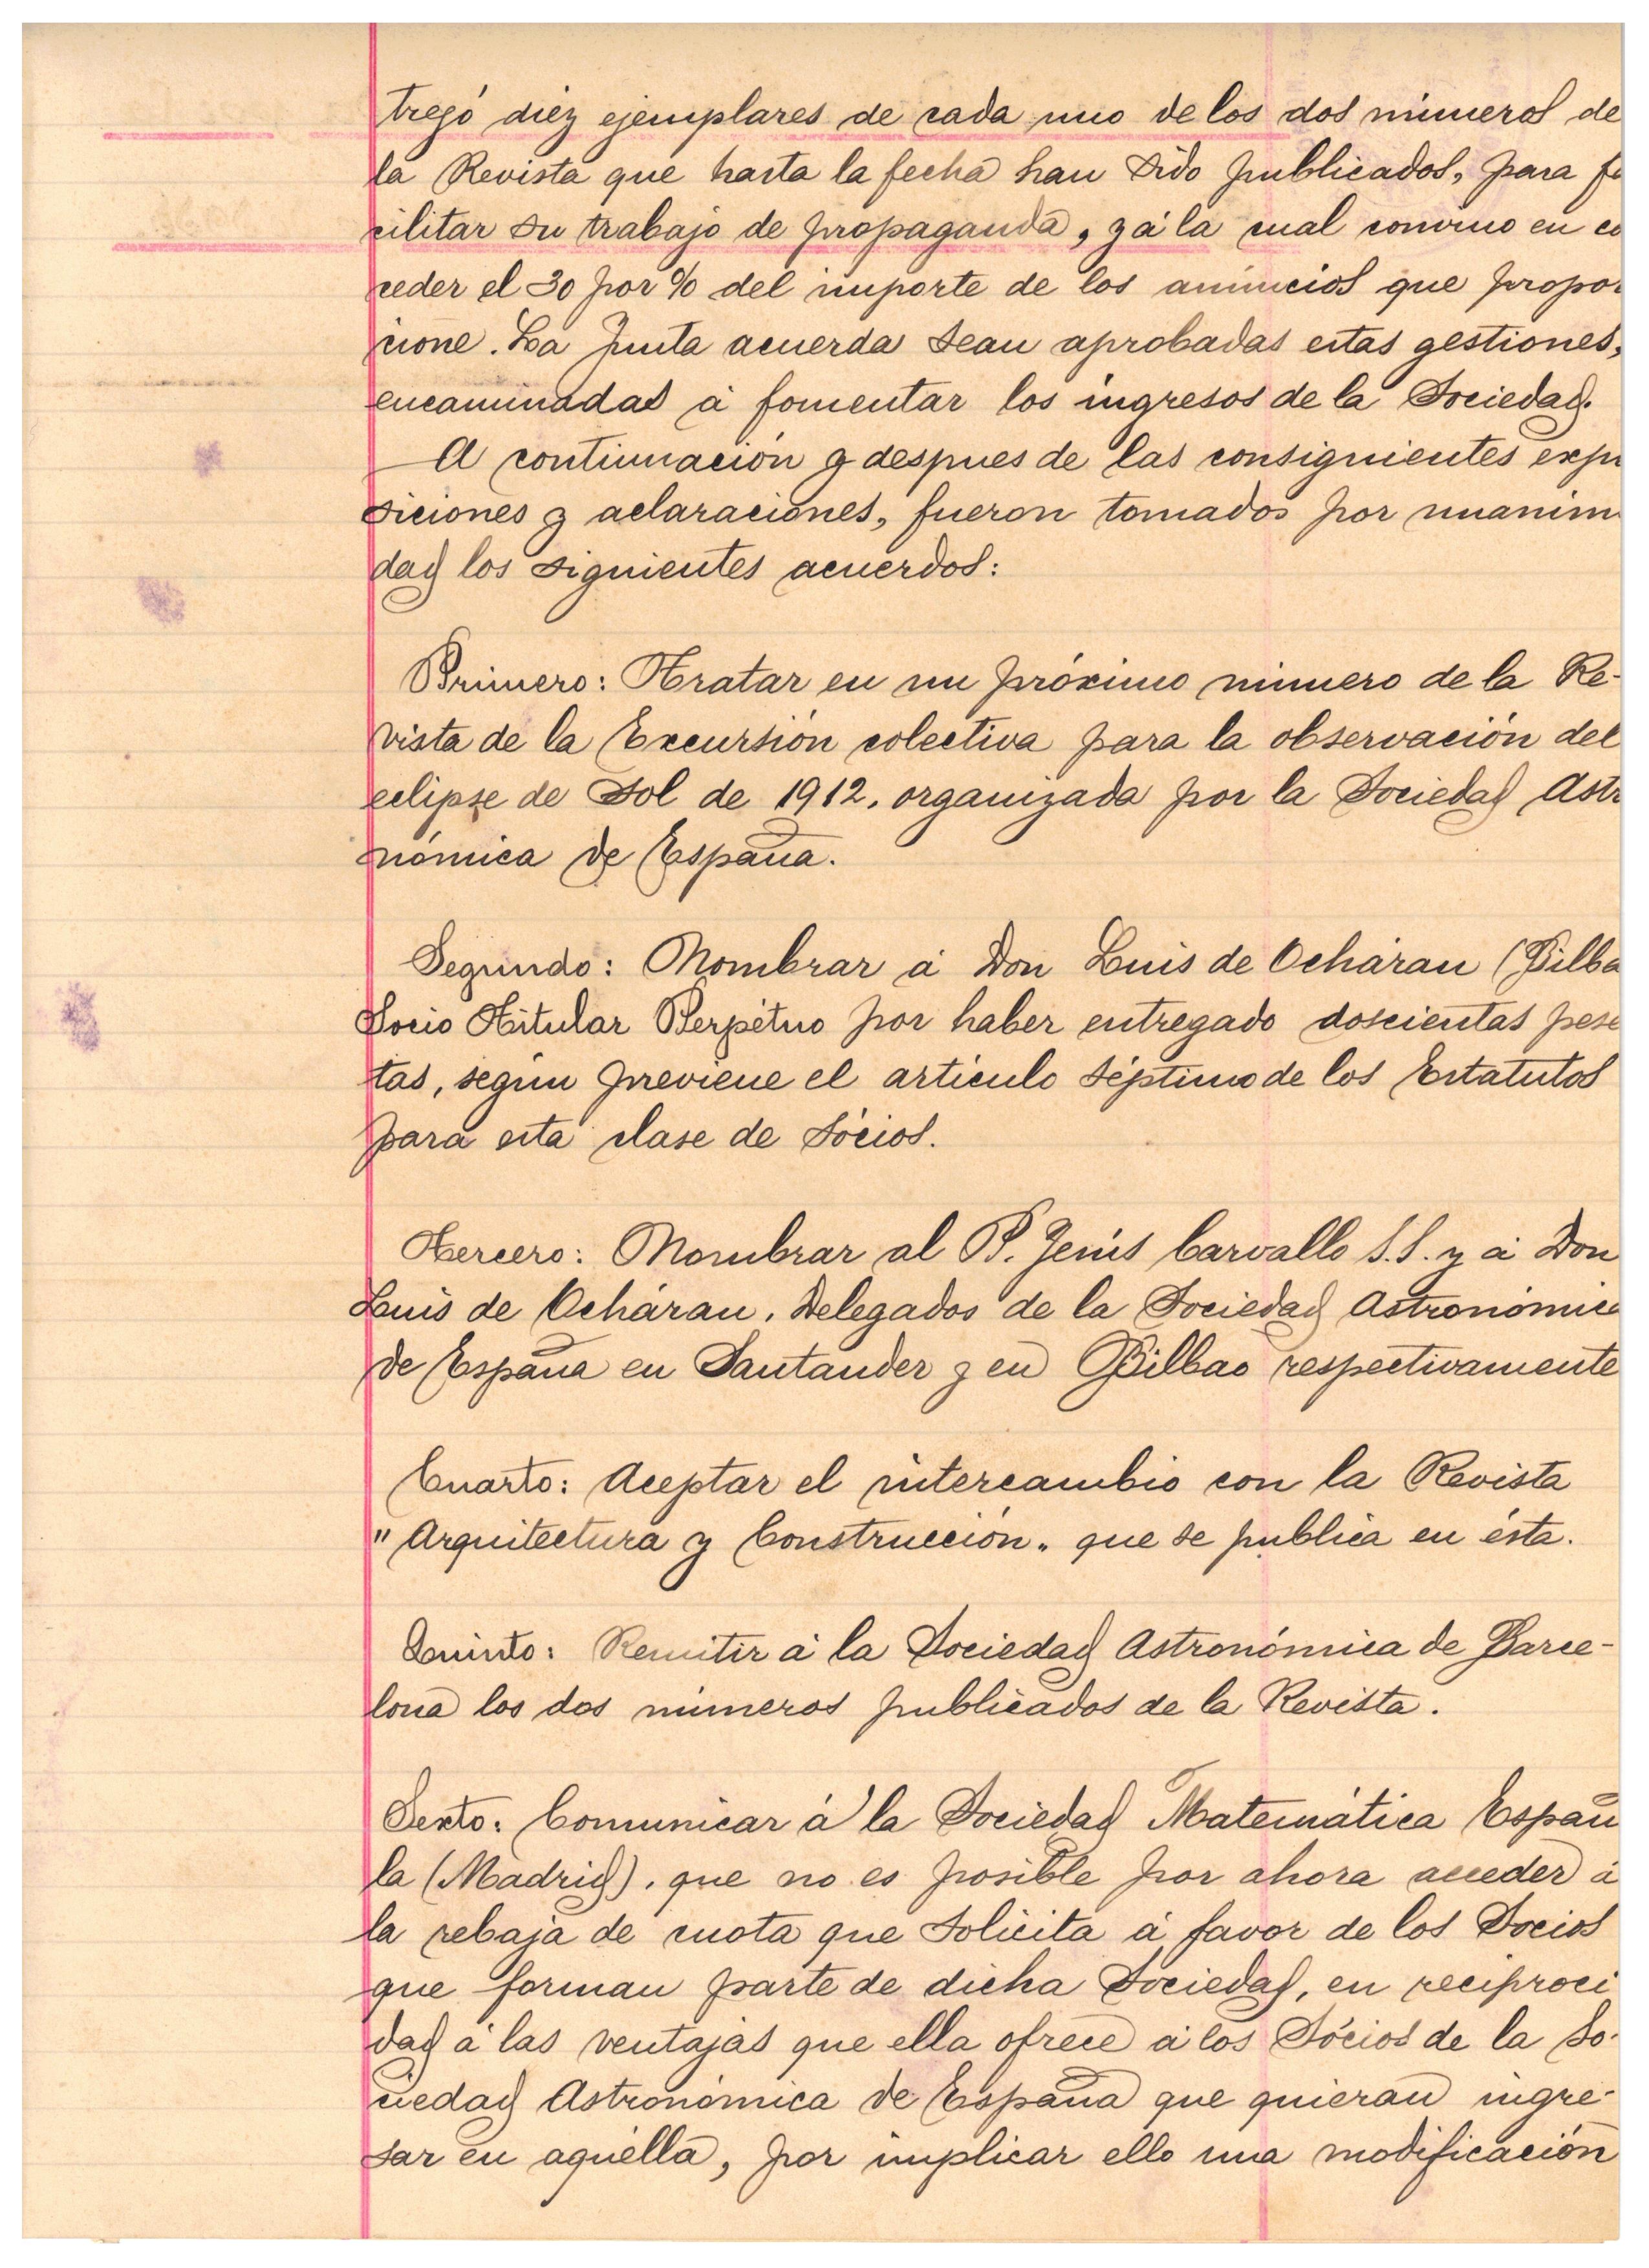 tregó diez ejemplares de cada uno de los dos números de
la Revista que hasta la fecha han sido publicados, para fa
cilitar su trabajo de propaganda, y á la cual convino en co
ceder el 30 por % del importe de los anuncios que propor
cione. La Junta acuerda sean aprobadas estas gestiones,
encaminadas á fomentar los ingresos de la Sociedad.
A continuación y despues de las consiguientes expo
siciones y aclaraciones, fueron tomados por unanim
dad los siguientes acuerdos:
Primero: Tratar en un próximo número de la Re-
vista de la Excursión colectiva para la observación del
eclipse de Sol de 1912, organizada por la Sociedad Astr
nómica de España.
Segundo: Nombrar á Don Luis de Ocháran (Bilba
Socio Titular Perpétuo por haber entregado doscientas pese
tas, según previene el artículo séptimo de los Estatutos
para esta clase de Sócios.
Tercero: Nombrar al P. Jesús Carvallo S.S. y á Don
Luis de Ocháran, Delegados de la Sociedad Astronómic
de España en Santander y en Bilbao respectivamente
Cuarto: Aceptar el intercambio con la Revista
"Arquitectura y Construcción" que se publica en ésta.
Quinto: Remitir á la Sociedad Astronómica de Barce-
lona los dos números publicados de la Revista.
Sexto: Comunicar á la Sociedad Matemática Españ
la (Madrid), que no es posible por ahora acceder á
la rebaja de cuota que solicita á favor de los Socios
que forman parte de dicha Sociedad, en reciproci
dad á las ventajas que ella ofrece á los Sócios de la So-
ciedad Astronómica de España que quieran ingre-
sar en aquélla, por implicar ello una modificación